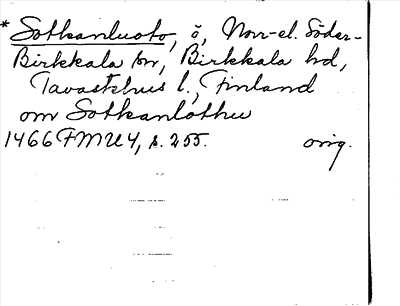 * Sotkanluoto, ö, Norr-el. Söder-
Birkkala sn, Birkkala hd,
Tavastehus l., Finland
om Sotkanlothu
1466 FMU 4, s. 255. orig.